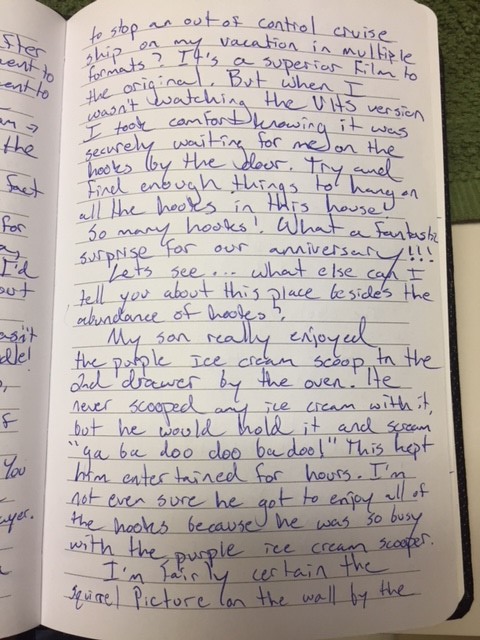 to stop an out of control cruise
ship on my vacation in multiple
formats? It's a superior film to
the original. But when I
wasn't watching the VHS version
I took comfort knowing it was
securely waiting for me on the
hooks by the door. Try and
find enough things to hang on
all the hooks in this house!
So many hooks! What a fantastic
surprise for our anniversary!!!
Lets see... what else can I
tell you about this place besides the
abundance of hooks?
My son really enjoyed
the purple ice cream scoop in the
2nd drawer by the oven. He
never scooped any ice cream with it,
but he would hold it and scream
"ya ba doo doo ba doo!" This kept
him entertained for hours. I'm
not even sure he got to enjoy all of
the hooks because he was so busy
with the purple ice cream scooper.
I'm fairly certain the
squirrel picture on the wall by the
ment to
ent to
the
fact
for
I'd
out
asn't
You
ayer.